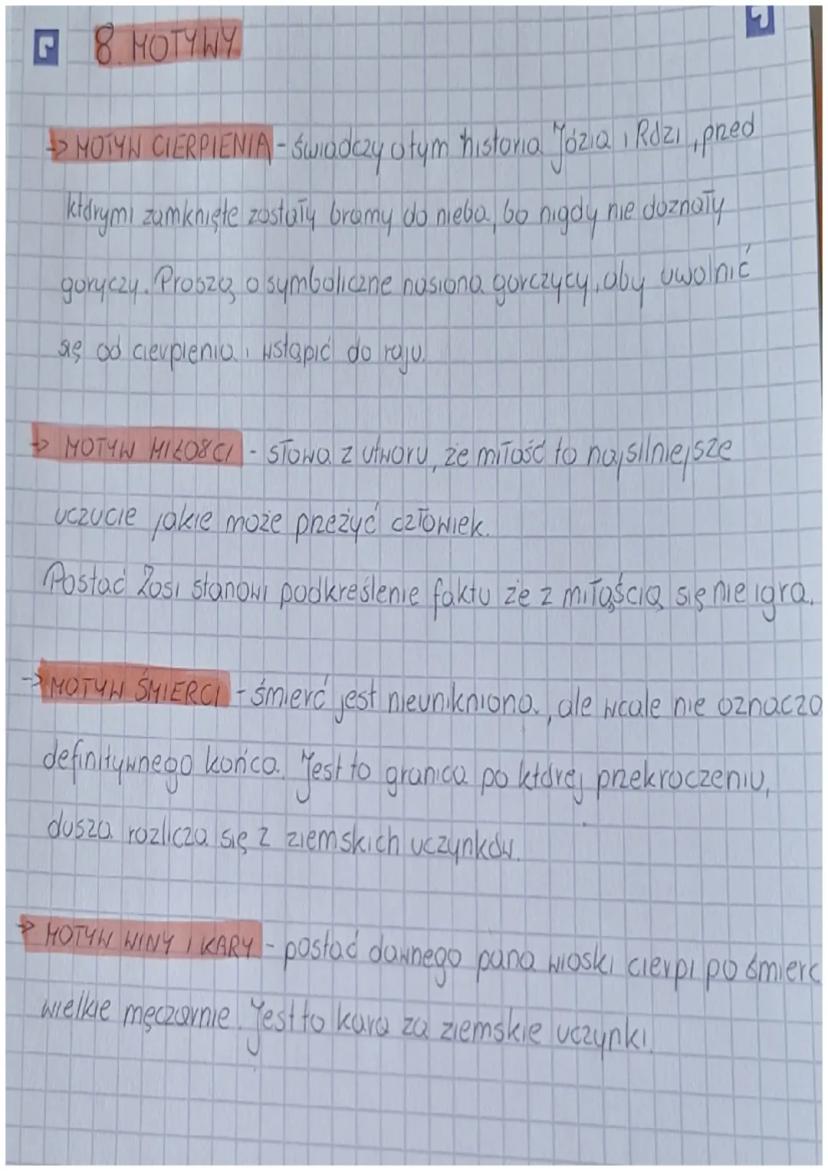 8. MOTYWY
→ MOTYW CIERPIENIA - świadczy o tym historia Józia i Rózi, przed
którymi zamknięte zostały bramy do nieba, bo nigdy nie doznały
goryczy. Proszą o symboliczne nasiona gorczycy, aby uwolnić
się od cierpienia i wstąpić do raju.
→ MOTYW MIŁOŚCI - słowa z utworu, że miłość to najsilniejsze
uczucie jakie może przeżyć człowiek.
Postać Zosi stanowi podkreślenie faktu że z miłąścią się nie igra.
→ MOTYW ŚMIERCI - śmierć jest nieunikniona, ale wcale nie oznacza
definitywnego końca. Jest to granica po której przekroczeniu,
dusza rozlicza się z ziemskich uczynków.
→ MOTYW WINY I KARY - postać dawnego pana wioski cierpi po śmierc
wielkie męczarnie. Jest to kara za ziemskie uczynki.